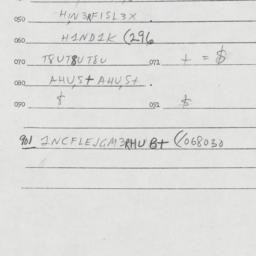 050 H1N3RE1SL3X
060 H1ND1K (296
070 T8UT8UT8U 071 + = $
080 AHUS+AHUS+.
090 $ 091 $
901 INCFLEJGM3RHUB+ (068030